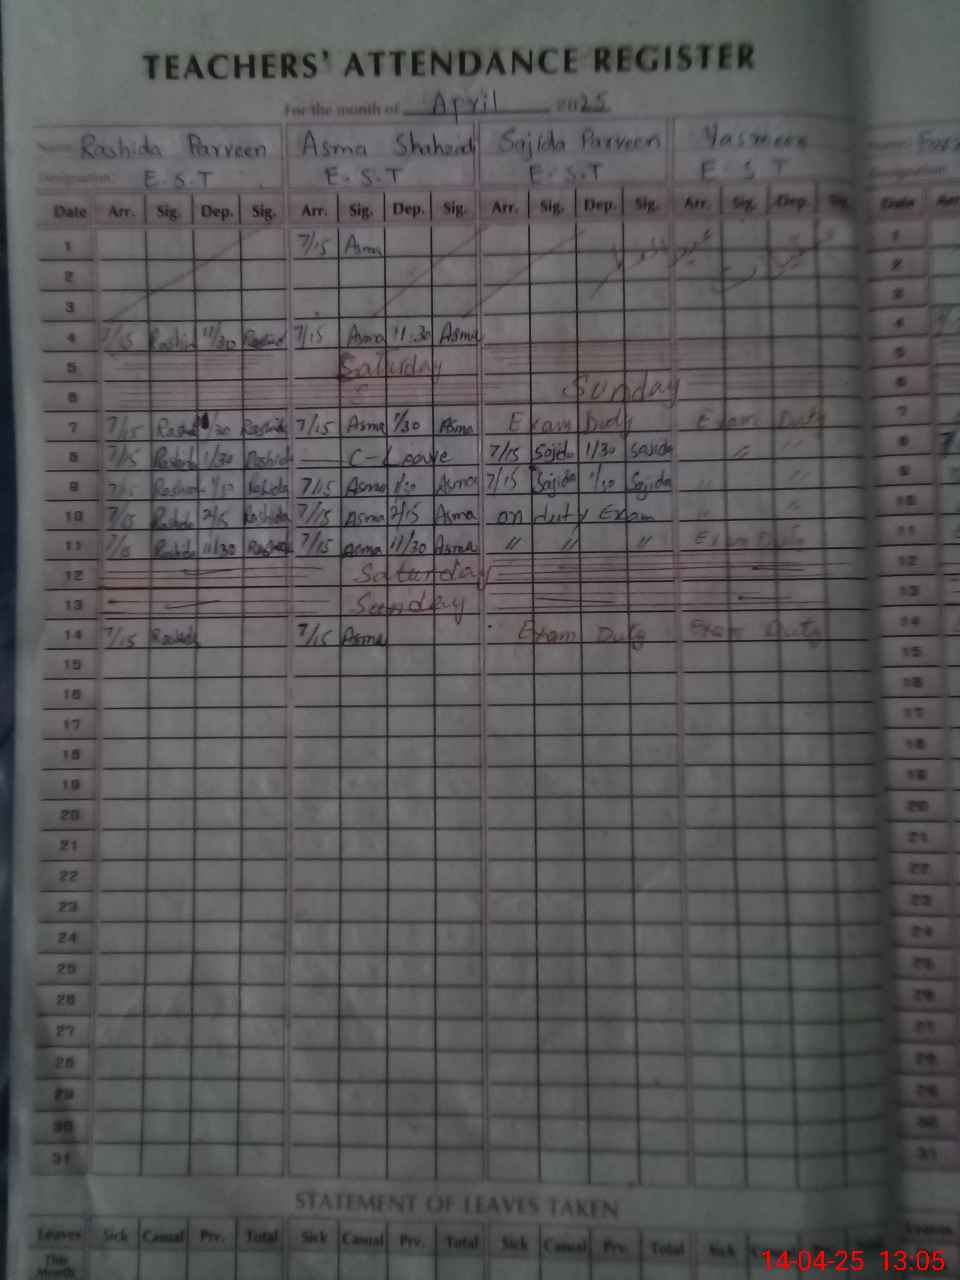 TEACHERS' ATTENDANCE REGISTER
For the month of April 2025
Name: Rashida Parveen Asma Shahzad Sajida Parveen Yasmeen
Designation: E.S.T E.S.T E.S.T E.S.T Designation
Date Arr. Sig. Dep. Sig. Arr. Sig. Dep. Sig. Arr. Sig. Dep. Sig. Arr. Sig. Dep. Sig. Date Arr.
1 7/15 Asma 1
2 2
3 3
4 7/15 Rashida 11/30 Rashid 7/15 Asma 11:30 Asma 4
5 Saturday 5
6 Sunday 6
7 7/15 Rashid 1/30 Rashida 7/15 Asma 1/30 Asma Exam Duty Exam Duty 7
8 7/15 Rashid 1/30 Rashida C-Leave 7/15 Sajida 1/30 Sajida " " 8
9 7/15 Rashid Rashida 7/15 Asma Asma 7/15 Sajida Sajida " " 9
10 7/15 Rashida 2/15 Rashida 7/15 Asma 2/15 Asma on duty Exam " " 10
11 7/15 Rashida 11/30 Rashida 7/15 Asma 11/30 Asma " " " Exam Duty 11
12 Saturday 12
13 Sunday 13
14 7/15 Rashida 7/15 Asma Exam Duty Exam Duty 14
15 15
16 16
17 17
18 18
19 19
20 20
21 21
22 22
23 23
24 24
25 25
26 26
27 27
28 28
29 29
30 30
31 31
STATEMENT OF LEAVES TAKEN
Leaves Sick Casual Prv. Total Sick Casual Prv. Total Sick Casual Prv. Total Sick Leaves
This Month
14-04-25 13:05